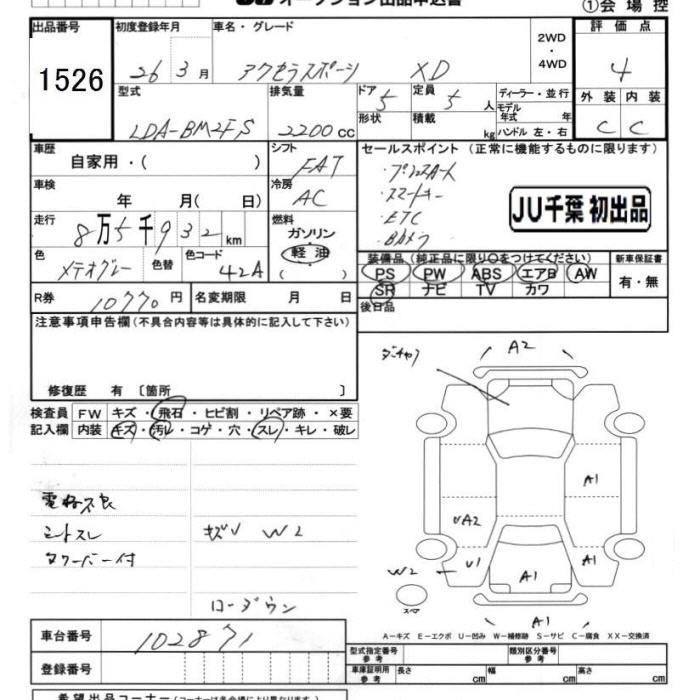 オークション出品申込書
①会場控
出品番号
1526
初度登録年月
26 3月
車名・グレード
アクセラスポーツ XD
2WD
・
4WD
評価点
4
型式
LDA-BM2FS
排気量
2200 cc
ドア 5
形状
定員 5人
積載 kg
ディーラー・並行
モデル
年式 年
ハンドル 左・右
外装 内装
C C
車歴
自家用・( )
シフト
FAT
セールスポイント (正常に機能するものに限ります)
・プッシュスタート
・スマートキー
・ETC
・Bカメラ
JU千葉 初出品
車検
年 月( 日)
冷房
AC
走行
8万5千932km
燃料
ガソリン
軽油
( )
色
メテオグレー
色替
色コード
42A
装備品(純正品に限り○をつけてください)
PS PW ABS エアB AW
SR ナビ TV カワ
新車保証書
有・無
R券
10770円
名変期限 月 日
後日品
注意事項申告欄(不具合内容等は具体的に記入して下さい)
修復歴 有 〔箇所 〕
検査員
記入欄
FW キズ・飛石・ヒビ割・リペア跡・×要
内装 キズ・汚レ・コゲ・穴・スレ・キレ・破レ
シートスレ
タワーバー付
キズU W2
ローダウン
A2
A1
UA2
U1
A1
A1
W2
スペア
A1
A-キズ E-エクボ U-凹み W-補修跡 S-サビ C-腐食 XX-交換済
車台番号
102871
登録番号
型式指定番号
参考
類別区分番号
参考
車庫証明用
参考
長さ cm
幅 cm
高さ cm
希望出品コーナー